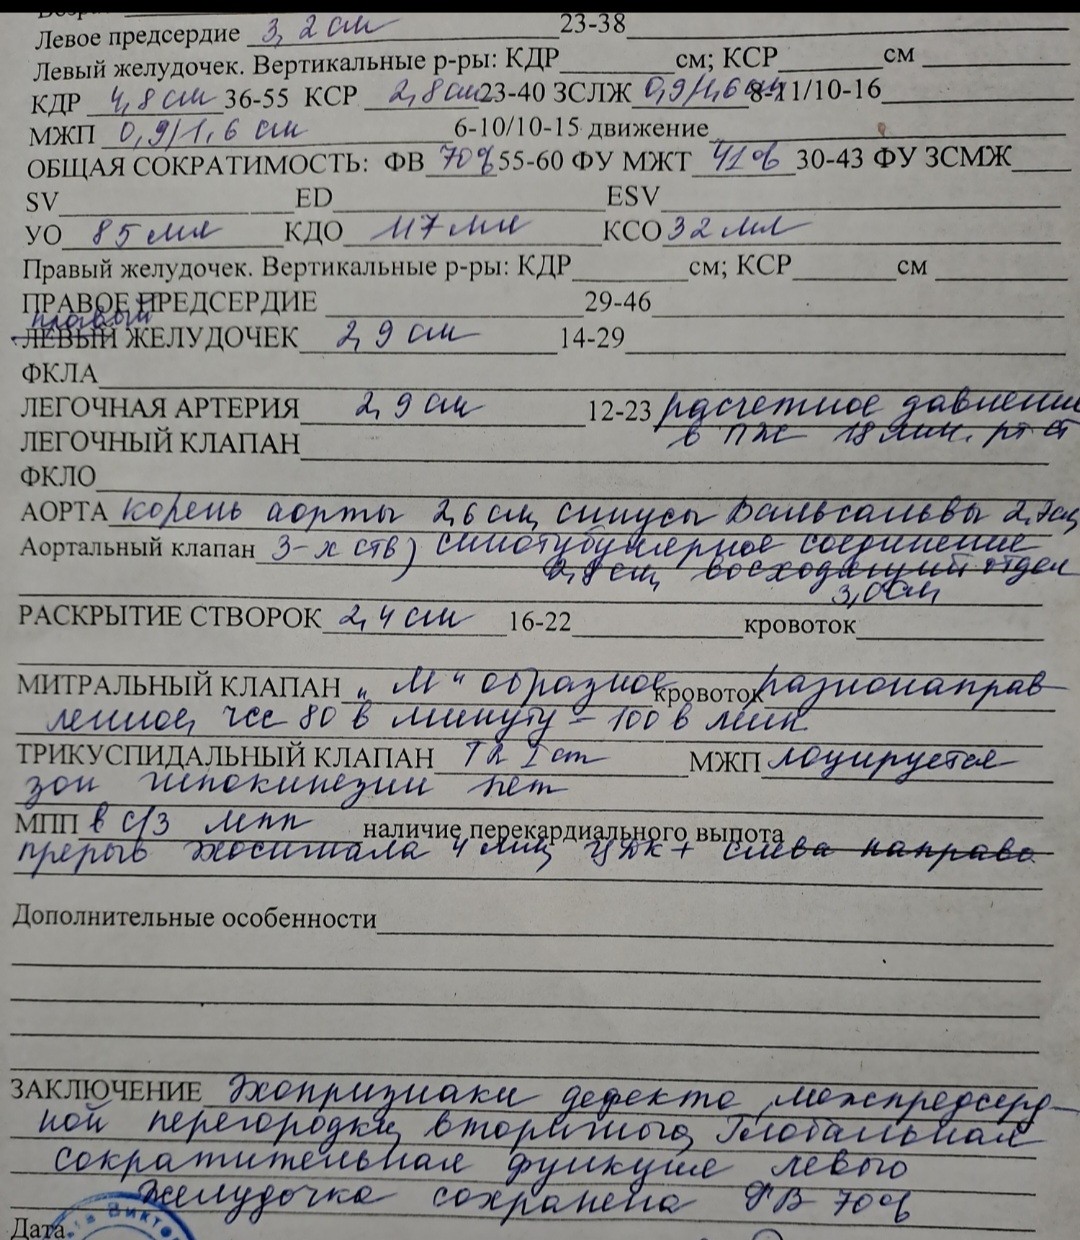 Левое предсердие 3,2 см 23-38
Левый желудочек. Вертикальные р-ры: КДР см; КСР см
КДР 4,8 см 36-55 КСР 2,8 см 23-40 ЗСЛЖ 0,9/1,6 см 8-11/10-16
МЖП 0,9/1,6 см 6-10/10-15 движение
ОБЩАЯ СОКРАТИМОСТЬ: ФВ 70% 55-60 ФУ МЖТ 41% 30-43 ФУ ЗСМЖ
SV ED ESV
УО 85 мл КДО 117 мл КСО 32 мл
Правый желудочек. Вертикальные р-ры: КДР см; КСР см
ПРАВОЕ ПРЕДСЕРДИЕ 29-46
правый
ЛЕВЫЙ ЖЕЛУДОЧЕК 2,9 см 14-29
ФКЛА
ЛЕГОЧНАЯ АРТЕРИЯ 2,9 см 12-23 расчетное давление
в ПЖ 18 мм. рт ст
ЛЕГОЧНЫЙ КЛАПАН
ФКЛО
АОРТА корень аорты 2,6 см, синусы Вальсальвы
Аортальный клапан 3-х ств) синотубулярное соединение
2,8 см, восходящий отдел
3,0 см
РАСКРЫТИЕ СТВОРОК 2,4 см 16-22 кровоток
МИТРАЛЬНЫЙ КЛАПАН "М" образное кровоток разнонаправ
ленное, чсс 80 в минуту - 100 в мин
ТРИКУСПИДАЛЬНЫЙ КЛАПАН TR I ст МЖП лоцируется
зон гипокинезии нет
МПП в с/3 мпп наличие перекардиального выпота
прерыв эхосигнала 4 мм, ЦДК + слева направо
Дополнительные особенности
ЗАКЛЮЧЕНИЕ Эхопризнаки дефекта межпредсерд-
ной перегородки, вторичного, Глобальная
сократительная функция левого
желудочка сохранена ФВ 70%
Дата